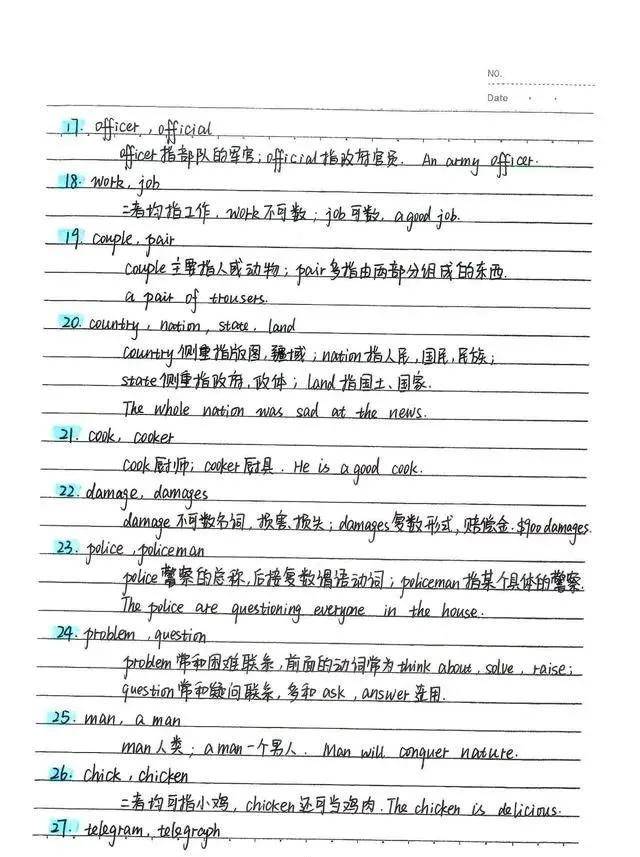 NO.
Date
17. officer, official
officer指部队的军官;official指政府官员. An army officer.
18. work, job
二者均指工作. work不可数;job可数. a good job.
19. couple, pair
couple主要指人或动物;pair多指由两部分组成的东西.
a pair of trousers.
20. country, nation, state, land
country侧重指版图,疆域;nation指人民,国民,民族;
state侧重指政府,政体;land指国土、国家.
The whole nation was sad at the news.
21. cook, cooker
cook厨师;cooker厨具. He is a good cook.
22. damage, damages
damage不可数名词,损害、损失;damages复数形式,赔偿金.$900 damages.
23. police, policeman
police警察的总称,后接复数谓语动词;policeman指某个具体的警察.
The police are questioning everyone in the house.
24. problem, question
problem常和困难联系,前面的动词常为think about, solve, raise;
question常和疑问联系,多和ask, answer连用.
25. man, a man
man人类;a man一个男人. Man will conquer nature.
26. chick, chicken
二者均可指小鸡,chicken还可当鸡肉.The chicken is delicious.
27. telegram, telegraph